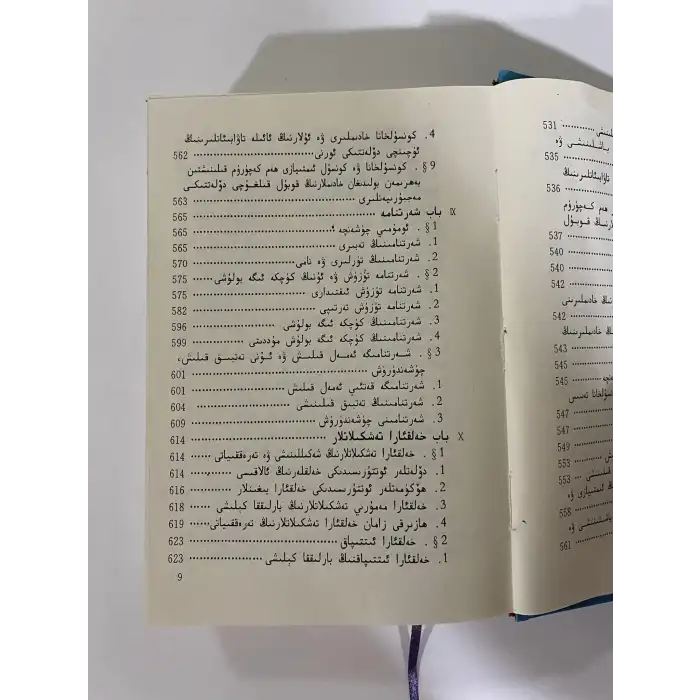 4. كونسۇلخانا خادىملىرى ۋە ئۇلارنىڭ ئائىلە تاۋابىئاتلىرىنىڭ
ئۈچىنچى دۆلەتتىكى ئورنى ············ 562
§ 9. كونسۇلخانا ۋە كونسۇل ئىمتىيازى ھەم كەچۈرۈم قىلىنىشتىن
بەھرىمەن بولىدىغان خادىملارنىڭ قوبۇل قىلغۇچى دۆلەتتىكى
مەجبۇرىيەتلىرى ············ 563
Ⅸ باب شەرتنامە ············ 565
§ 1. ئومۇمىي چۈشەنچە ············ 565
1. شەرتنامىنىڭ تەبىرى ············ 565
2. شەرتنامىنىڭ تۈرلىرى ۋە نامى ············ 570
§ 2. شەرتنامە تۈزۈش ۋە ئۇنىڭ كۈچكە ئىگە بولۇشى ······ 575
1. شەرتنامە تۈزۈش ئىقتىدارى ············ 575
2. شەرتنامە تۈزۈش تەرتىپى ············ 582
3. شەرتنامىنىڭ كۈچكە ئىگە بولۇشى ············ 596
4. شەرتنامىنىڭ كۈچكە ئىگە بولۇش مۇددىتى ············ 599
§ 3. شەرتنامىگە ئەمەل قىلىش ۋە ئۇنى تەتبىق قىلىش،
چۈشەندۈرۈش ············ 601
1. شەرتنامىگە قەتئىي ئەمەل قىلىش ············ 601
2. شەرتنامىنىڭ تەتبىق قىلىنىشى ············ 604
3. شەرتنامىنى چۈشەندۈرۈش ············ 609
Ⅹ باب خەلقئارا تەشكىلاتلار ············ 614
§ 1. خەلقئارا تەشكىلاتلارنىڭ شەكىللىنىشى ۋە تەرەققىياتى ···· 614
1. دۆلەتلەر ئوتتۇرىسىدىكى خەلقلەرنىڭ ئالاقىسى ········ 614
2. ھۆكۈمەتلەر ئوتتۇرىسىدىكى خەلقئارا يىغىنلار ········ 616
3. خەلقئارا مەمۇرىي تەشكىلاتلارنىڭ بارلىققا كېلىشى ······ 618
4. ھازىرقى زامان خەلقئارا تەشكىلاتلارنىڭ تەرەققىياتى ···· 619
§ 2. خەلقئارا ئىتتىپاق ············ 623
1. خەلقئارا ئىتتىپاقنىڭ بارلىققا كېلىشى ············ 623
9
531
535
تاۋابىئاتلىرىنىڭ
536
ھەم كەچۈرۈم
قوبۇل
537
540
540
542
خادىملىرىنى
542
خادىملىرىنىڭ
543
545
545
547
547
549
553
553
ئىمتىيازى ۋە
558
561